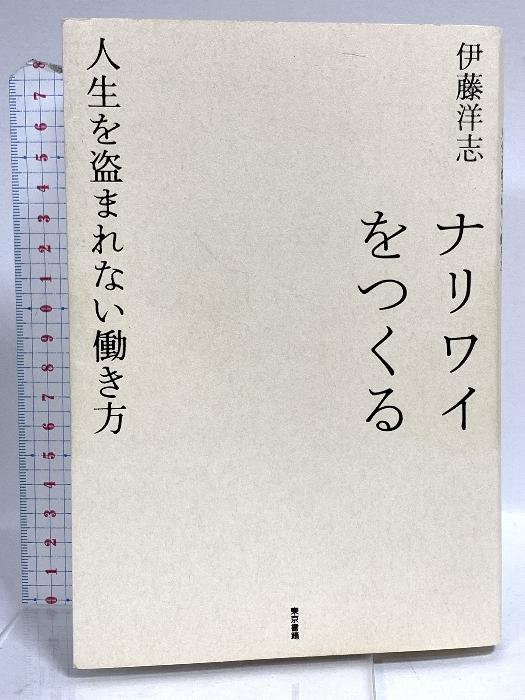 伊藤洋志
ナリワイ
をつくる
人生を盗まれない働き方
東京書籍
8
7
6
5
4
3
2
1
0
9
8
7
6
5
4
3
2
1
0